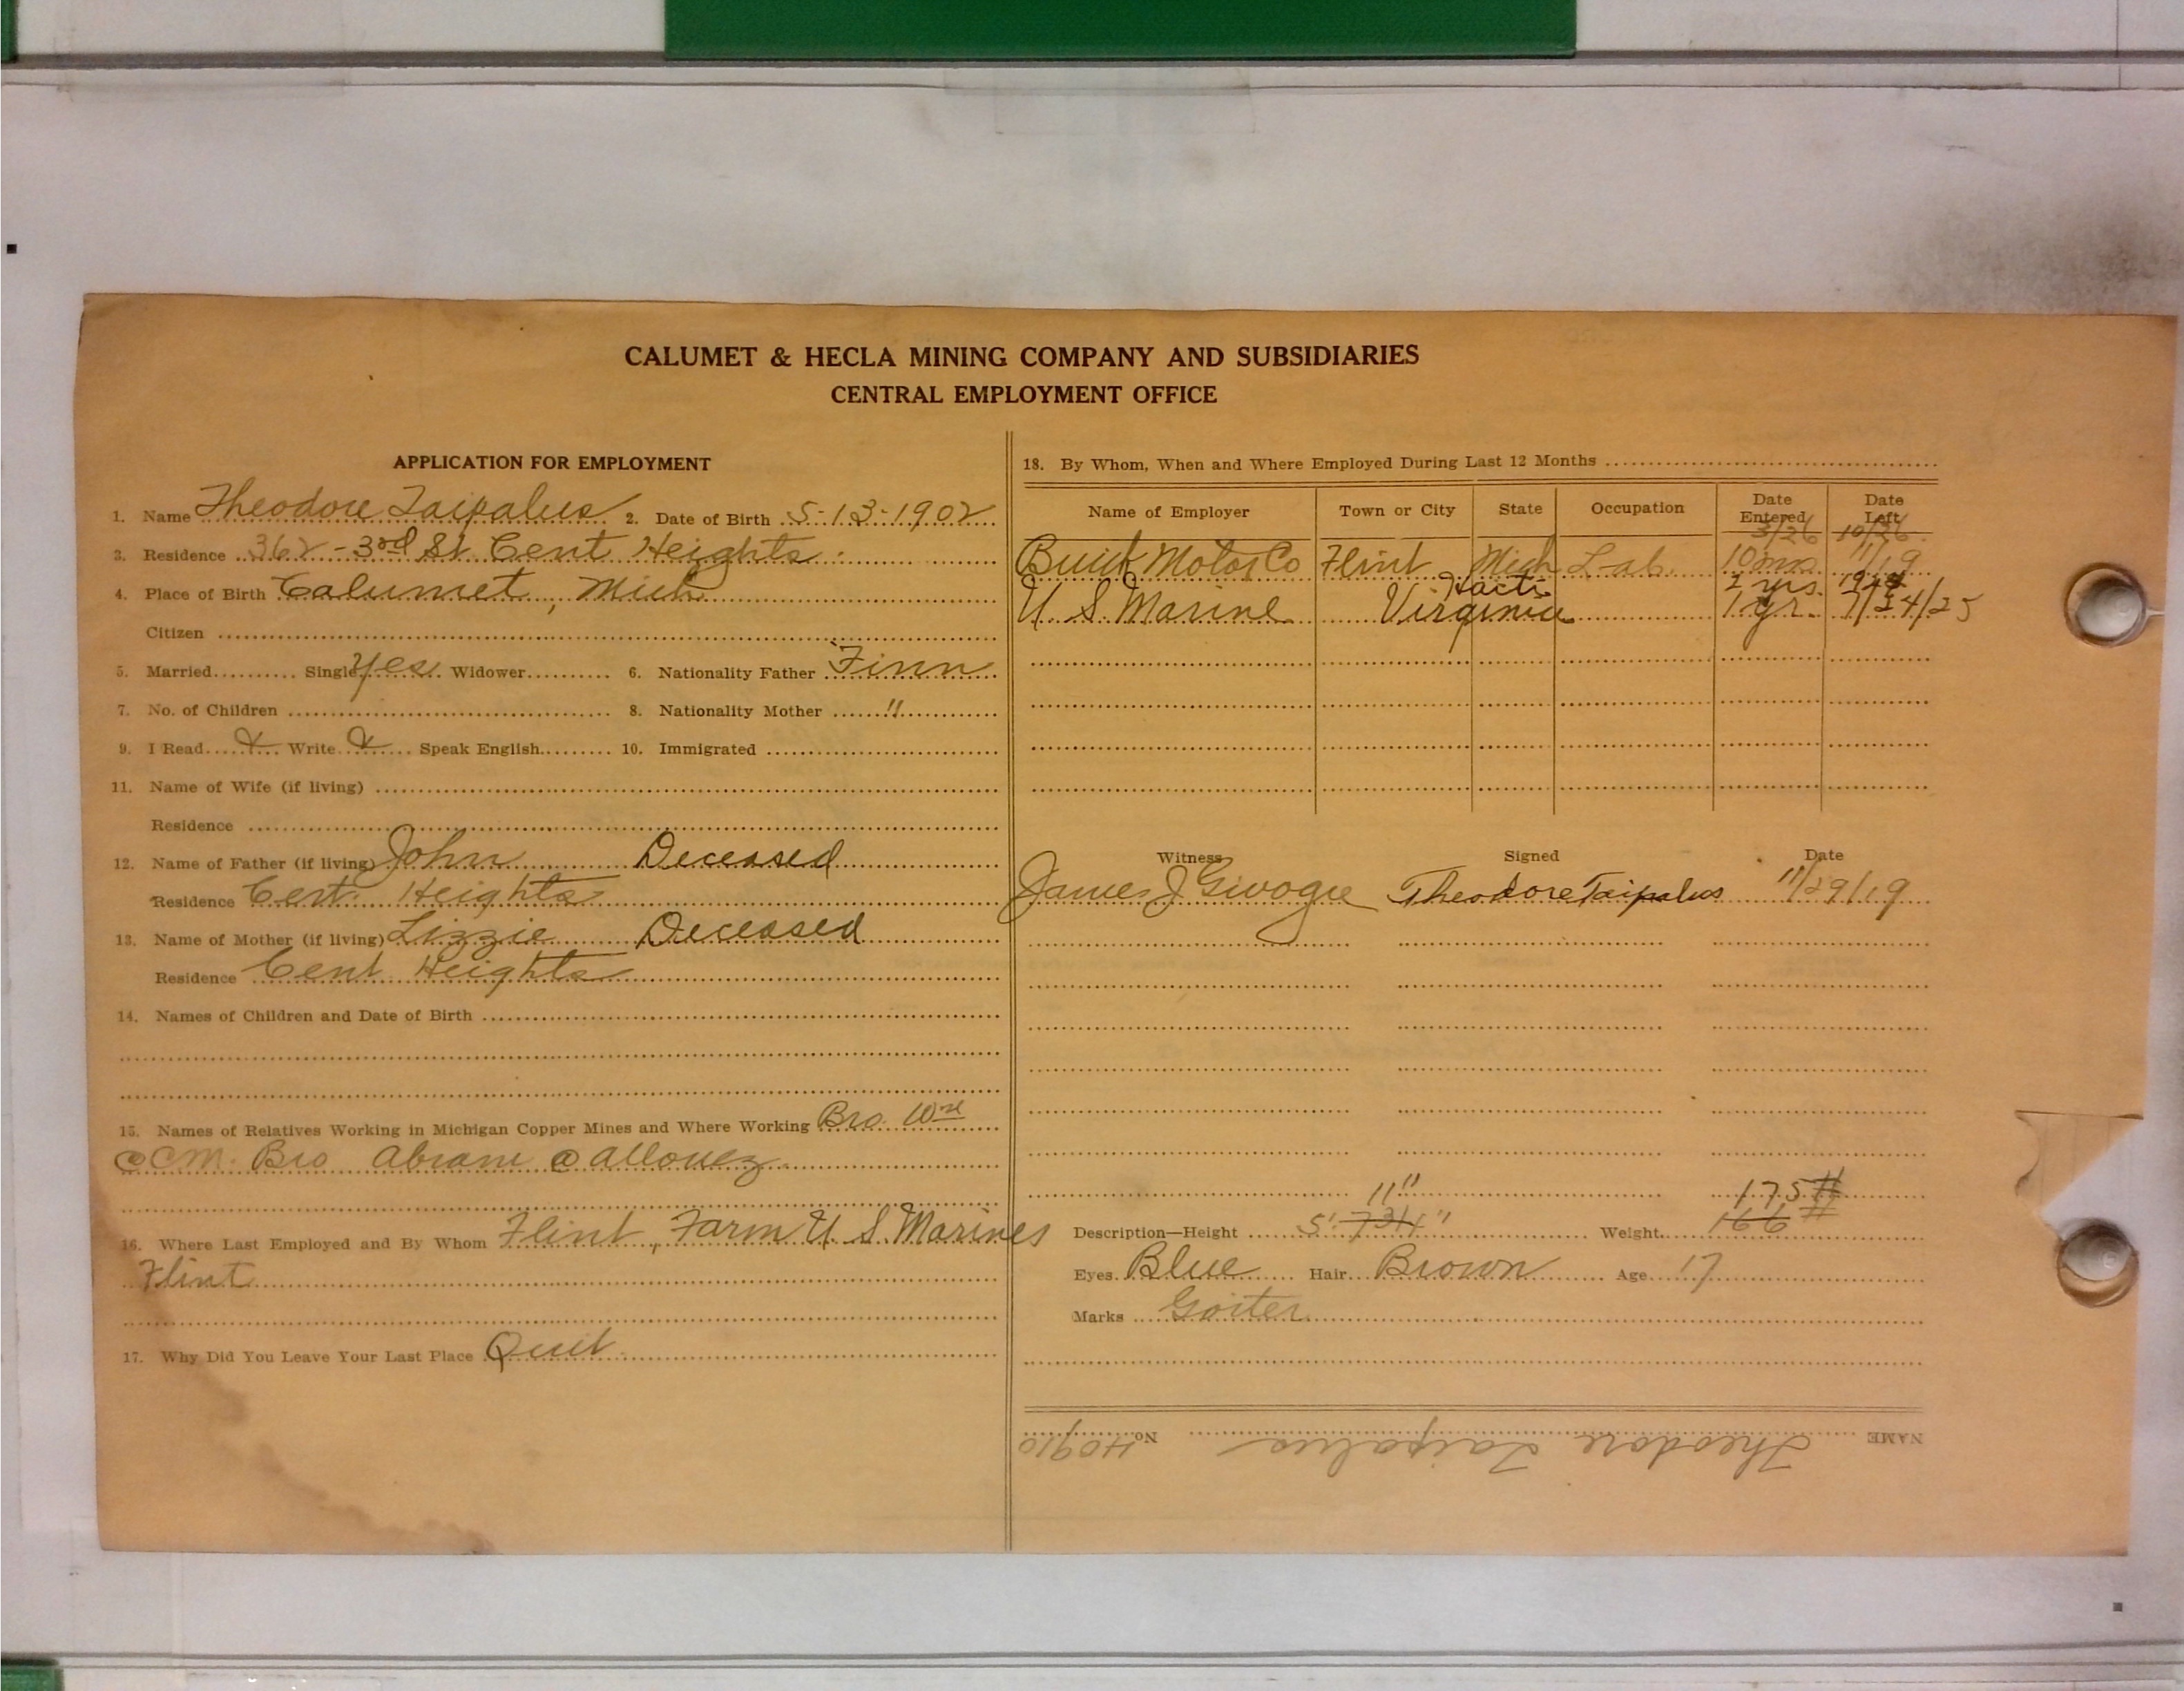 CALUMET & HECLA MINING COMPANY AND SUBSIDIARIES
CENTRAL EMPLOYMENT OFFICE
APPLICATION FOR EMPLOYMENT
1. Name Theodore Taipalus 2. Date of Birth 5-13-1902
3. Residence 362-3rd St Cent Heights
4. Place of Birth Calumet, Mich
Citizen
5. Married Single Yes Widower 6. Nationality Father Finn
7. No. of Children 8. Nationality Mother "
9. I Read Write Speak English 10. Immigrated
11. Name of Wife (if living)
Residence
12. Name of Father (if living) John Deceased
Residence Cent. Heights
13. Name of Mother (if living) Lizzie Deceased
Residence Cent Heights
14. Names of Children and Date of Birth
15. Names of Relatives Working in Michigan Copper Mines and Where Working Bro. Wm
@ CM. Bro Abram @ Allouez
16. Where Last Employed and By Whom Flint, Farm U. S. Marines
Flint
17. Why Did You Leave Your Last Place Quit
18. By Whom, When and Where Employed During Last 12 Months
Name of Employer Town or City State Occupation Date Entered Date Left
3/26 10/26
Buick Motor Co Flint Mich Lab. 10 mo 11/19
U. S. Marine Virginia 1 yr. 25
Witness Signed Date
James J Theodore Taipalus 11/29/19
11" 175 #
Description—Height 5' 7 3/4" Weight 166 #
Eyes Blue Hair Brown Age 17
Marks Goiter
NAME Theodore Taipalus No. 40910